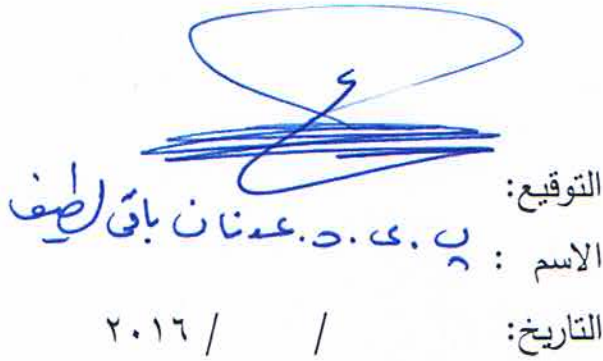 التوقيع:
الاسم : پ.ی.د.عدنان باقی لطیف
التاريخ: / / ٢٠١٦